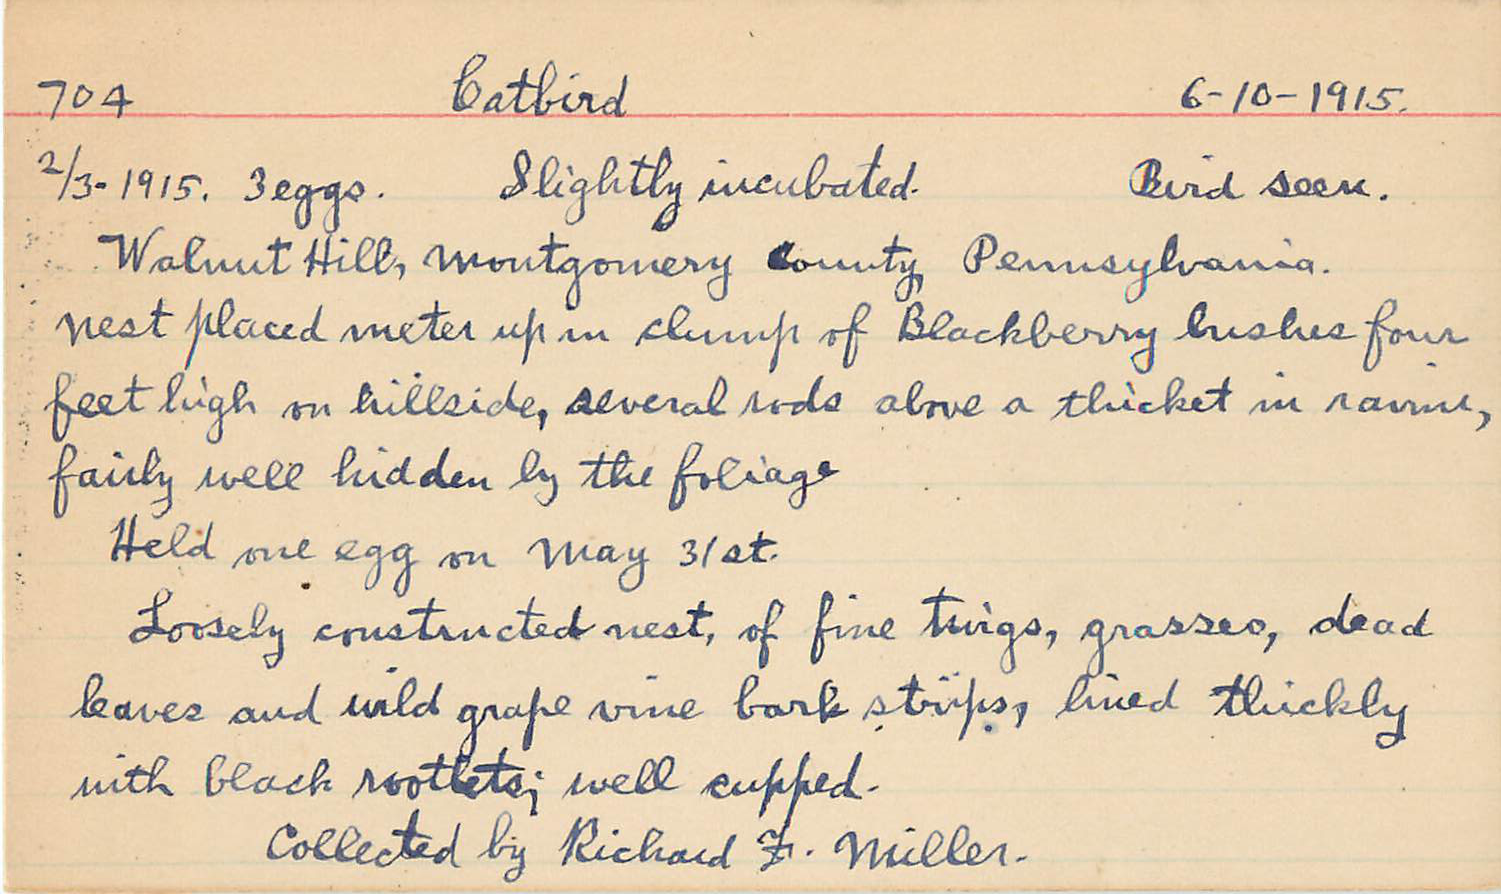 704 Catbird 6-10-1915.
2/3-1915. 3 eggs. Slightly incubated. Bird seen.
Walnut Hill, Montgomery County, Pennsylvania.
Nest placed meter up in clump of Blackberry bushes four
feet high on hillside, several rods above a thicket in ravine,
fairly well hidden by the foliage
Held one egg on May 31st.
Loosely constructed nest, of fine twigs, grasses, dead
leaves and wild grape vine bark strips, lined thickly
with black rootlets; well cupped.
Collected by Richard F. Miller.